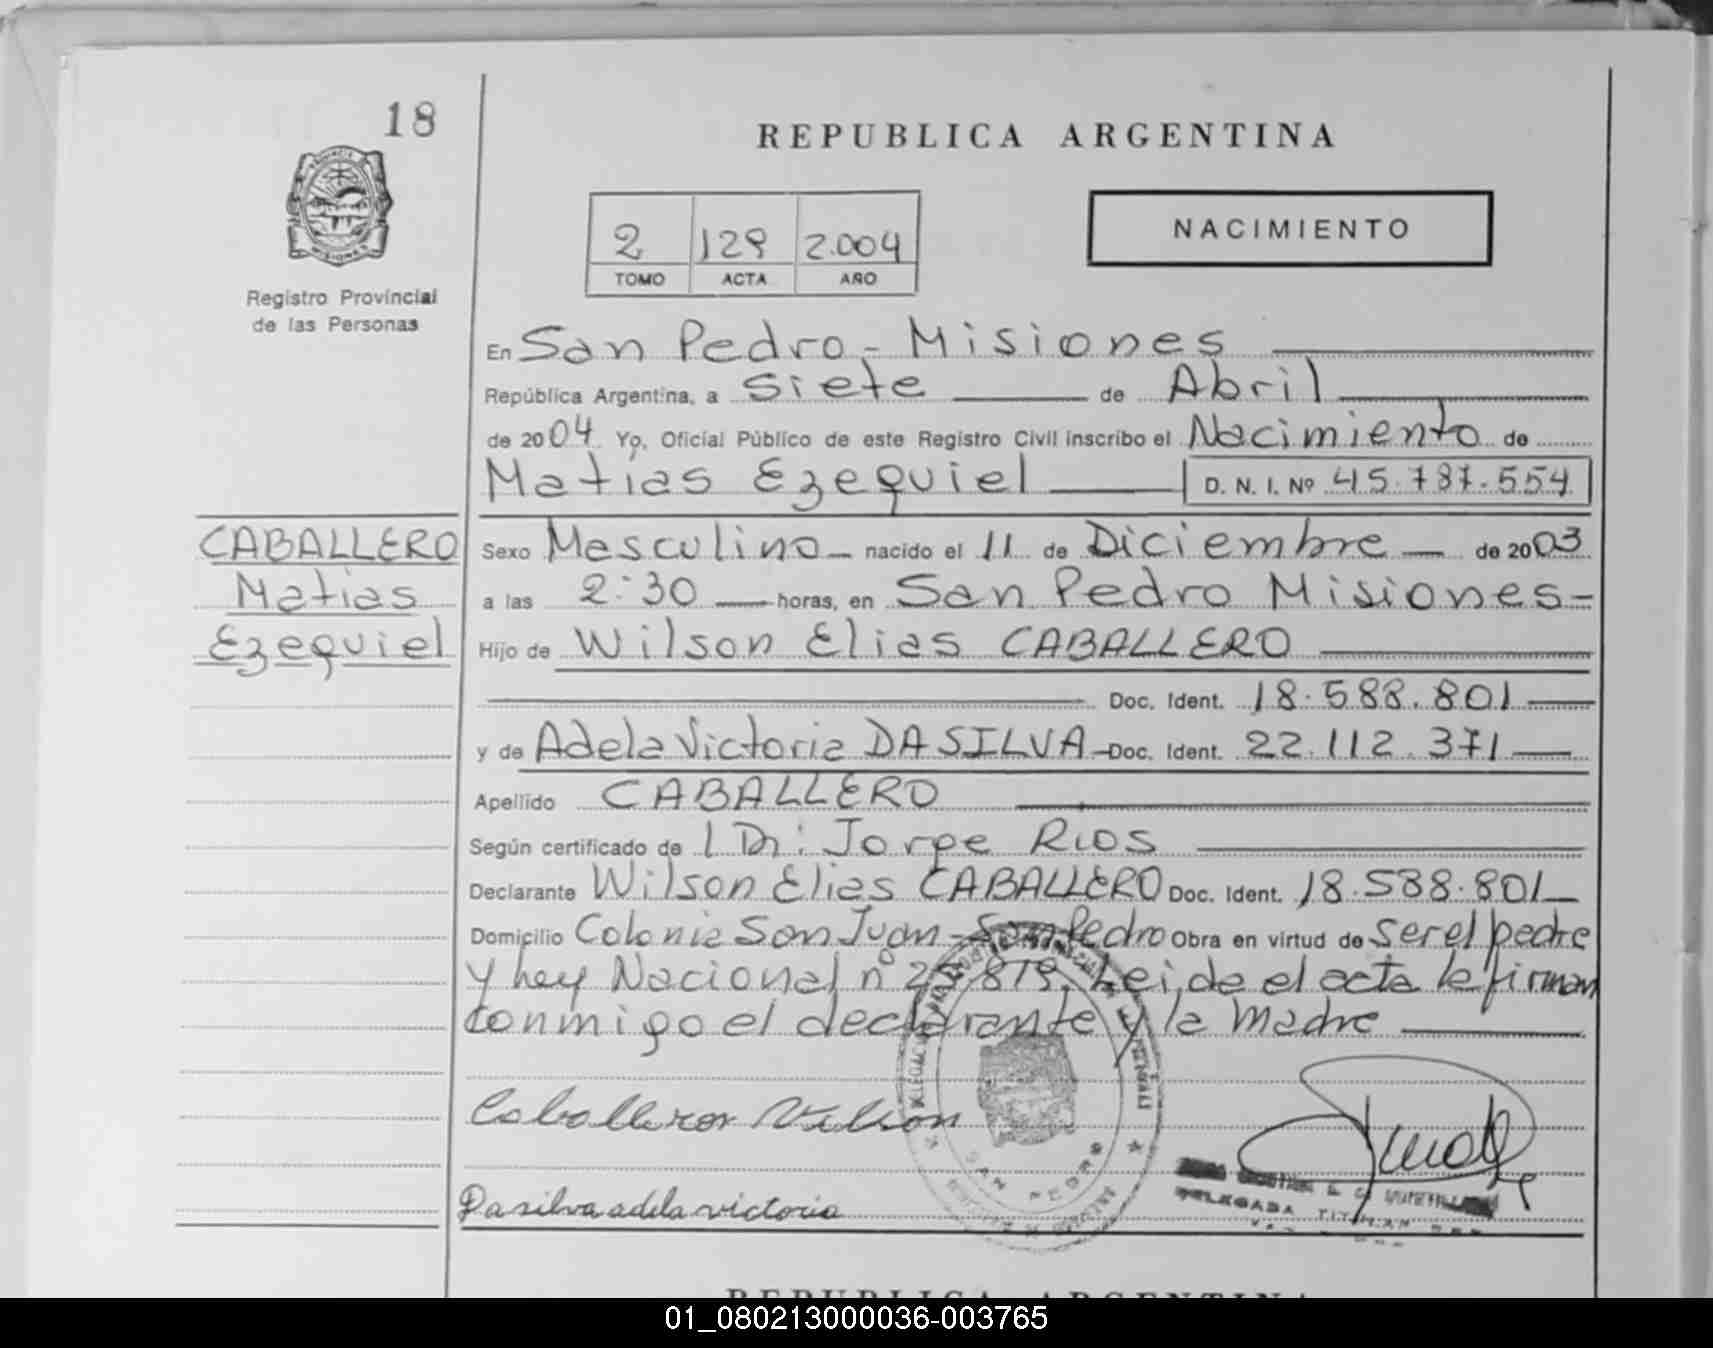 18
REPUBLICA ARGENTINA
2 129 2.004
TOMO ACTA AÑO
NACIMIENTO
Registro Provincial
de las Personas
En San Pedro - Misiones
República Argentina, a siete de Abril
de 2004 Yo, Oficial Público de este Registro Civil inscribo el Nacimiento de
Matias Ezequiel D. N. I. Nº 45.787.554
CABALLERO
Matias
Ezequiel
Sexo Masculino - nacido el 11 de Diciembre de 2003
a las 2:30 horas, en San Pedro Misiones-
Hijo de Wilson Elias CABALLERO
Doc. Ident. 18.588.801
y de Adela Victoria DASILVA - Doc. Ident. 22.112.371
Apellido CABALLERO
Según certificado de Jorge RIOS
Declarante Wilson Elias CABALLERO Doc. Ident. 18.588.801
Domicilio Colonia San Juan - San Pedro Obra en virtud de ser el padre
y ley Nacional nº 25.819. Leida el acta la firman
conmigo el declarante y la madre
Caballero Wilson
Dasilva adela victoria
SAN PEDRO
DELEGADA TITULAR
REPUBLICA ARGENTINA
01_080213000036-003765